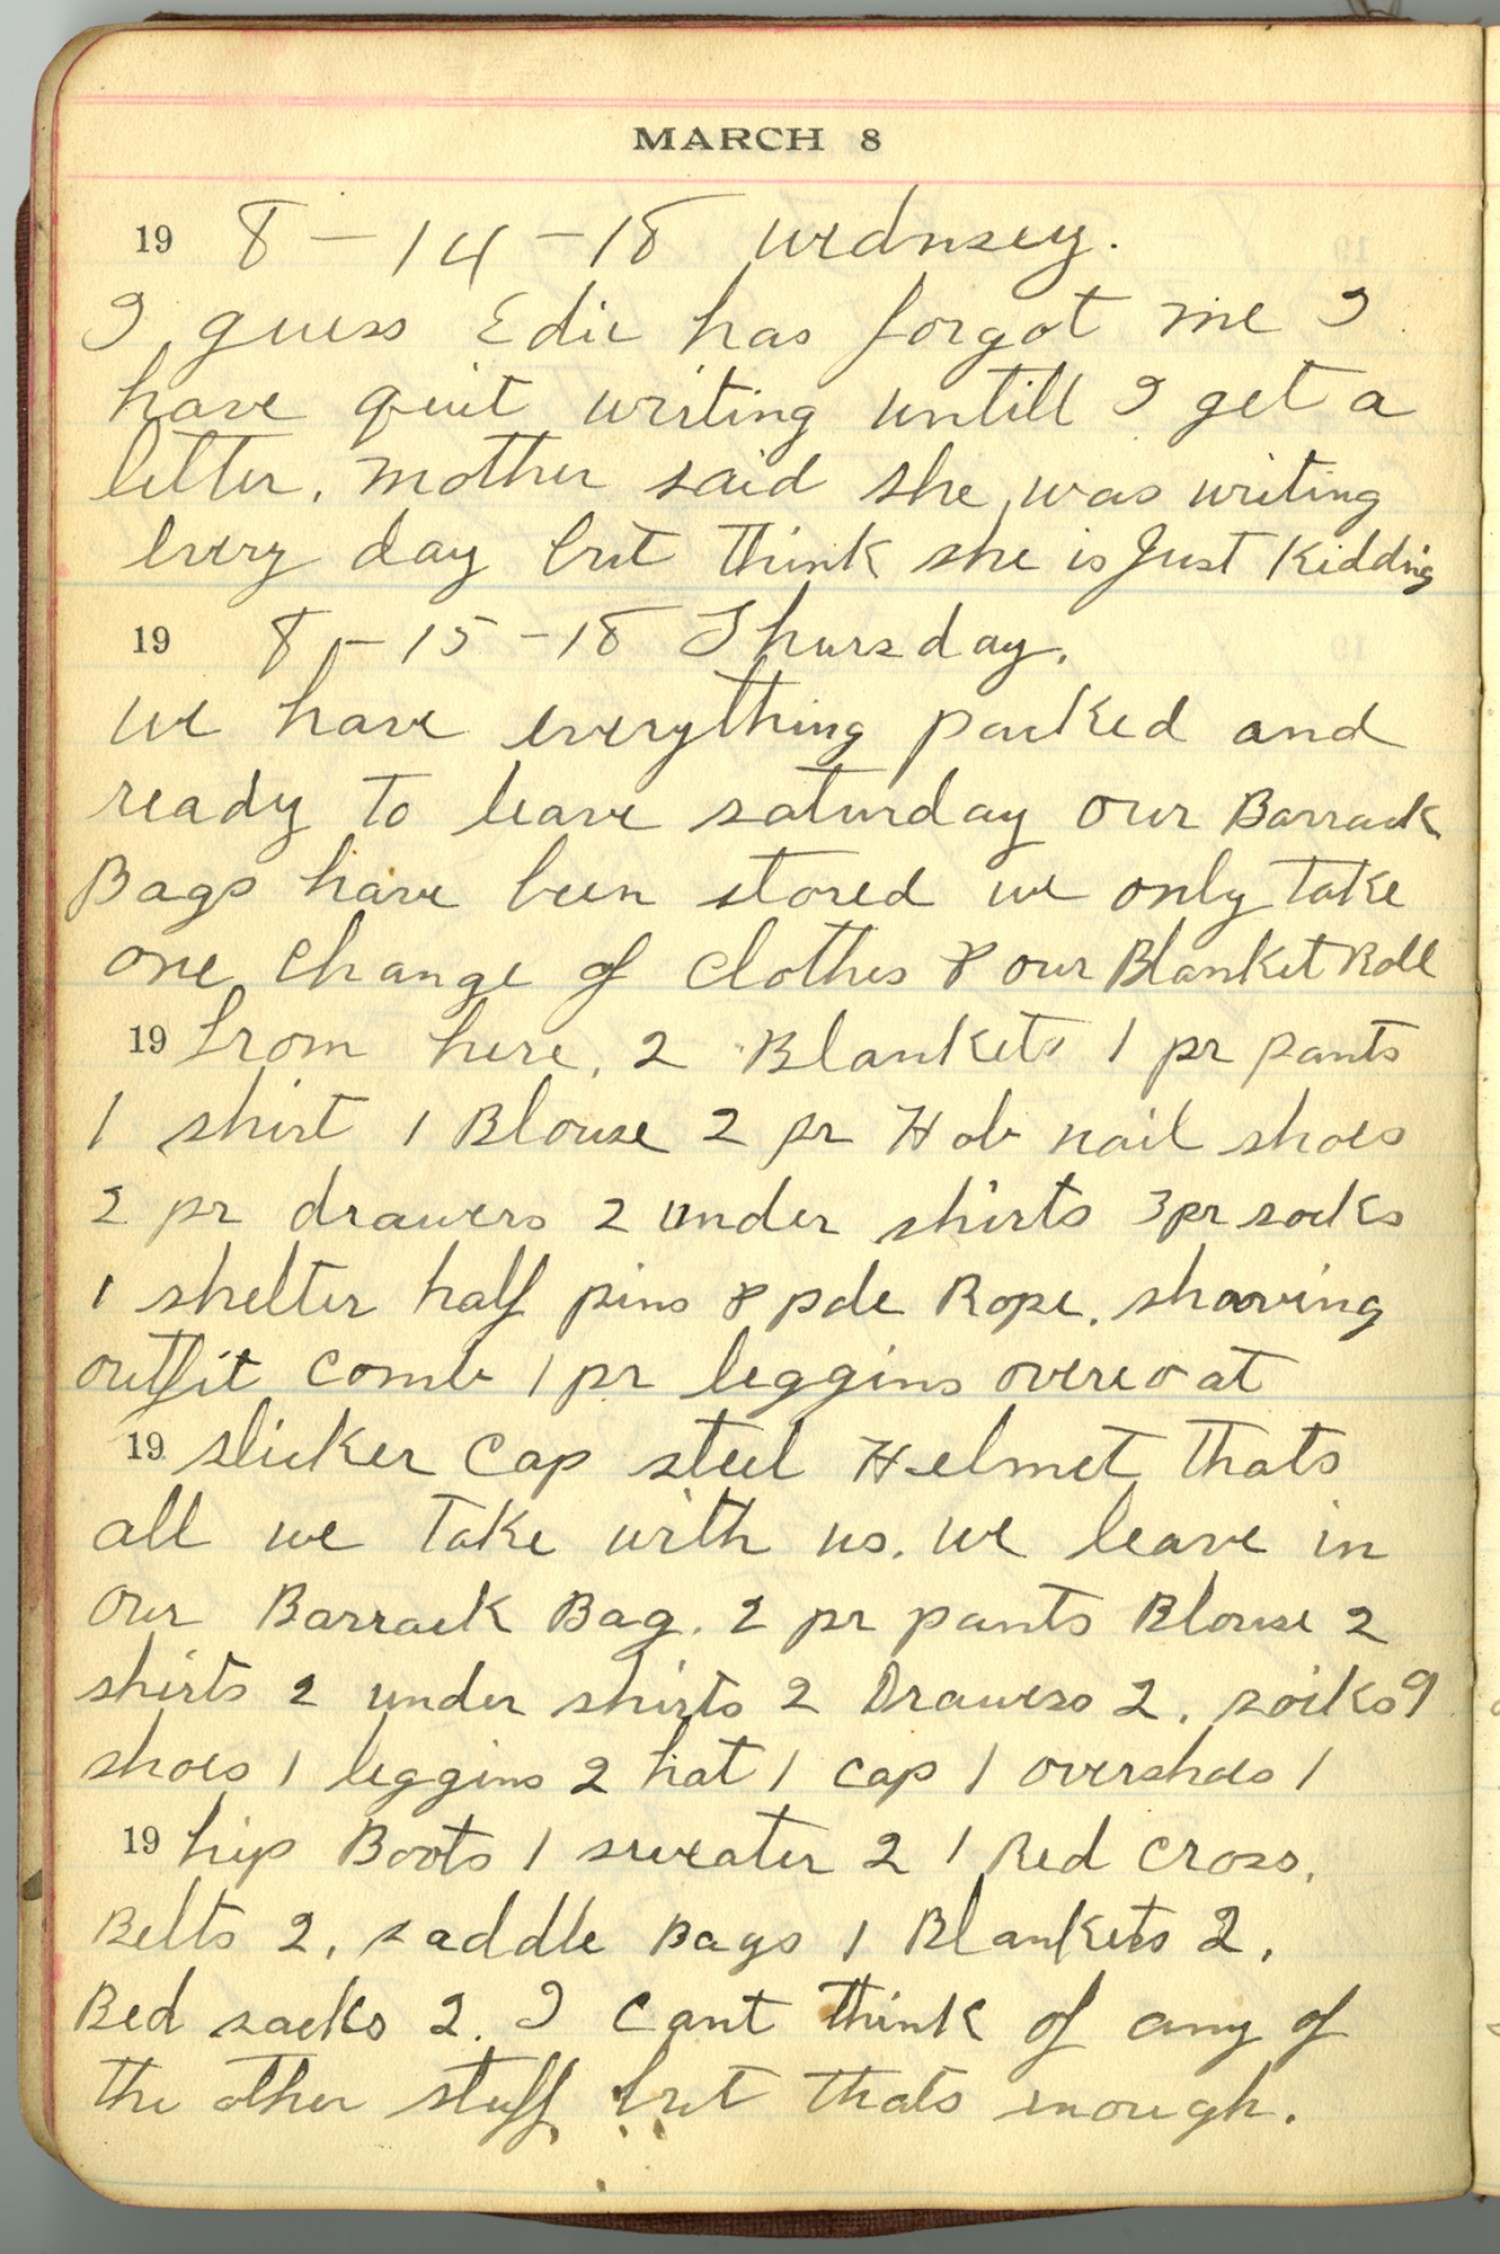 MARCH 8
19 8-14-18 wednsey.
I guess Edie has forgot me I
have quit writing untill I get a
letter. mother said she was writing
every day but think she is Just Kidding
19 8-15-18 Thursday.
we have everything packed and
ready to leave saturday our Barrack
Bags have been stored we only take
one change of clothes & our Blanket Roll
19 from here, 2 Blankets 1 pr pants
1 shirt 1 Blouse 2 pr Hob nail shoes
2 pr drawers 2 under shirts 3 pr socks
1 shelter half pins & pole Rope. shaving
outfit comb 1 pr leggins overcoat
19 slicker Cap steel Helmet thats
all we take with us. we leave in
our Barrack Bag. 2 pr pants Blouse 2
shirts 2 under shirts 2 Drawers 2. socks 9
shoes 1 leggins 2 hat 1 cap 1 overshoes 1
19 hip Boots 1 sweater 2 1 Red Cross.
Belts 2, saddle Bags 1 Blankets 2.
Bed sacks 2. I cant think of any of
the other stuff but thats enough.